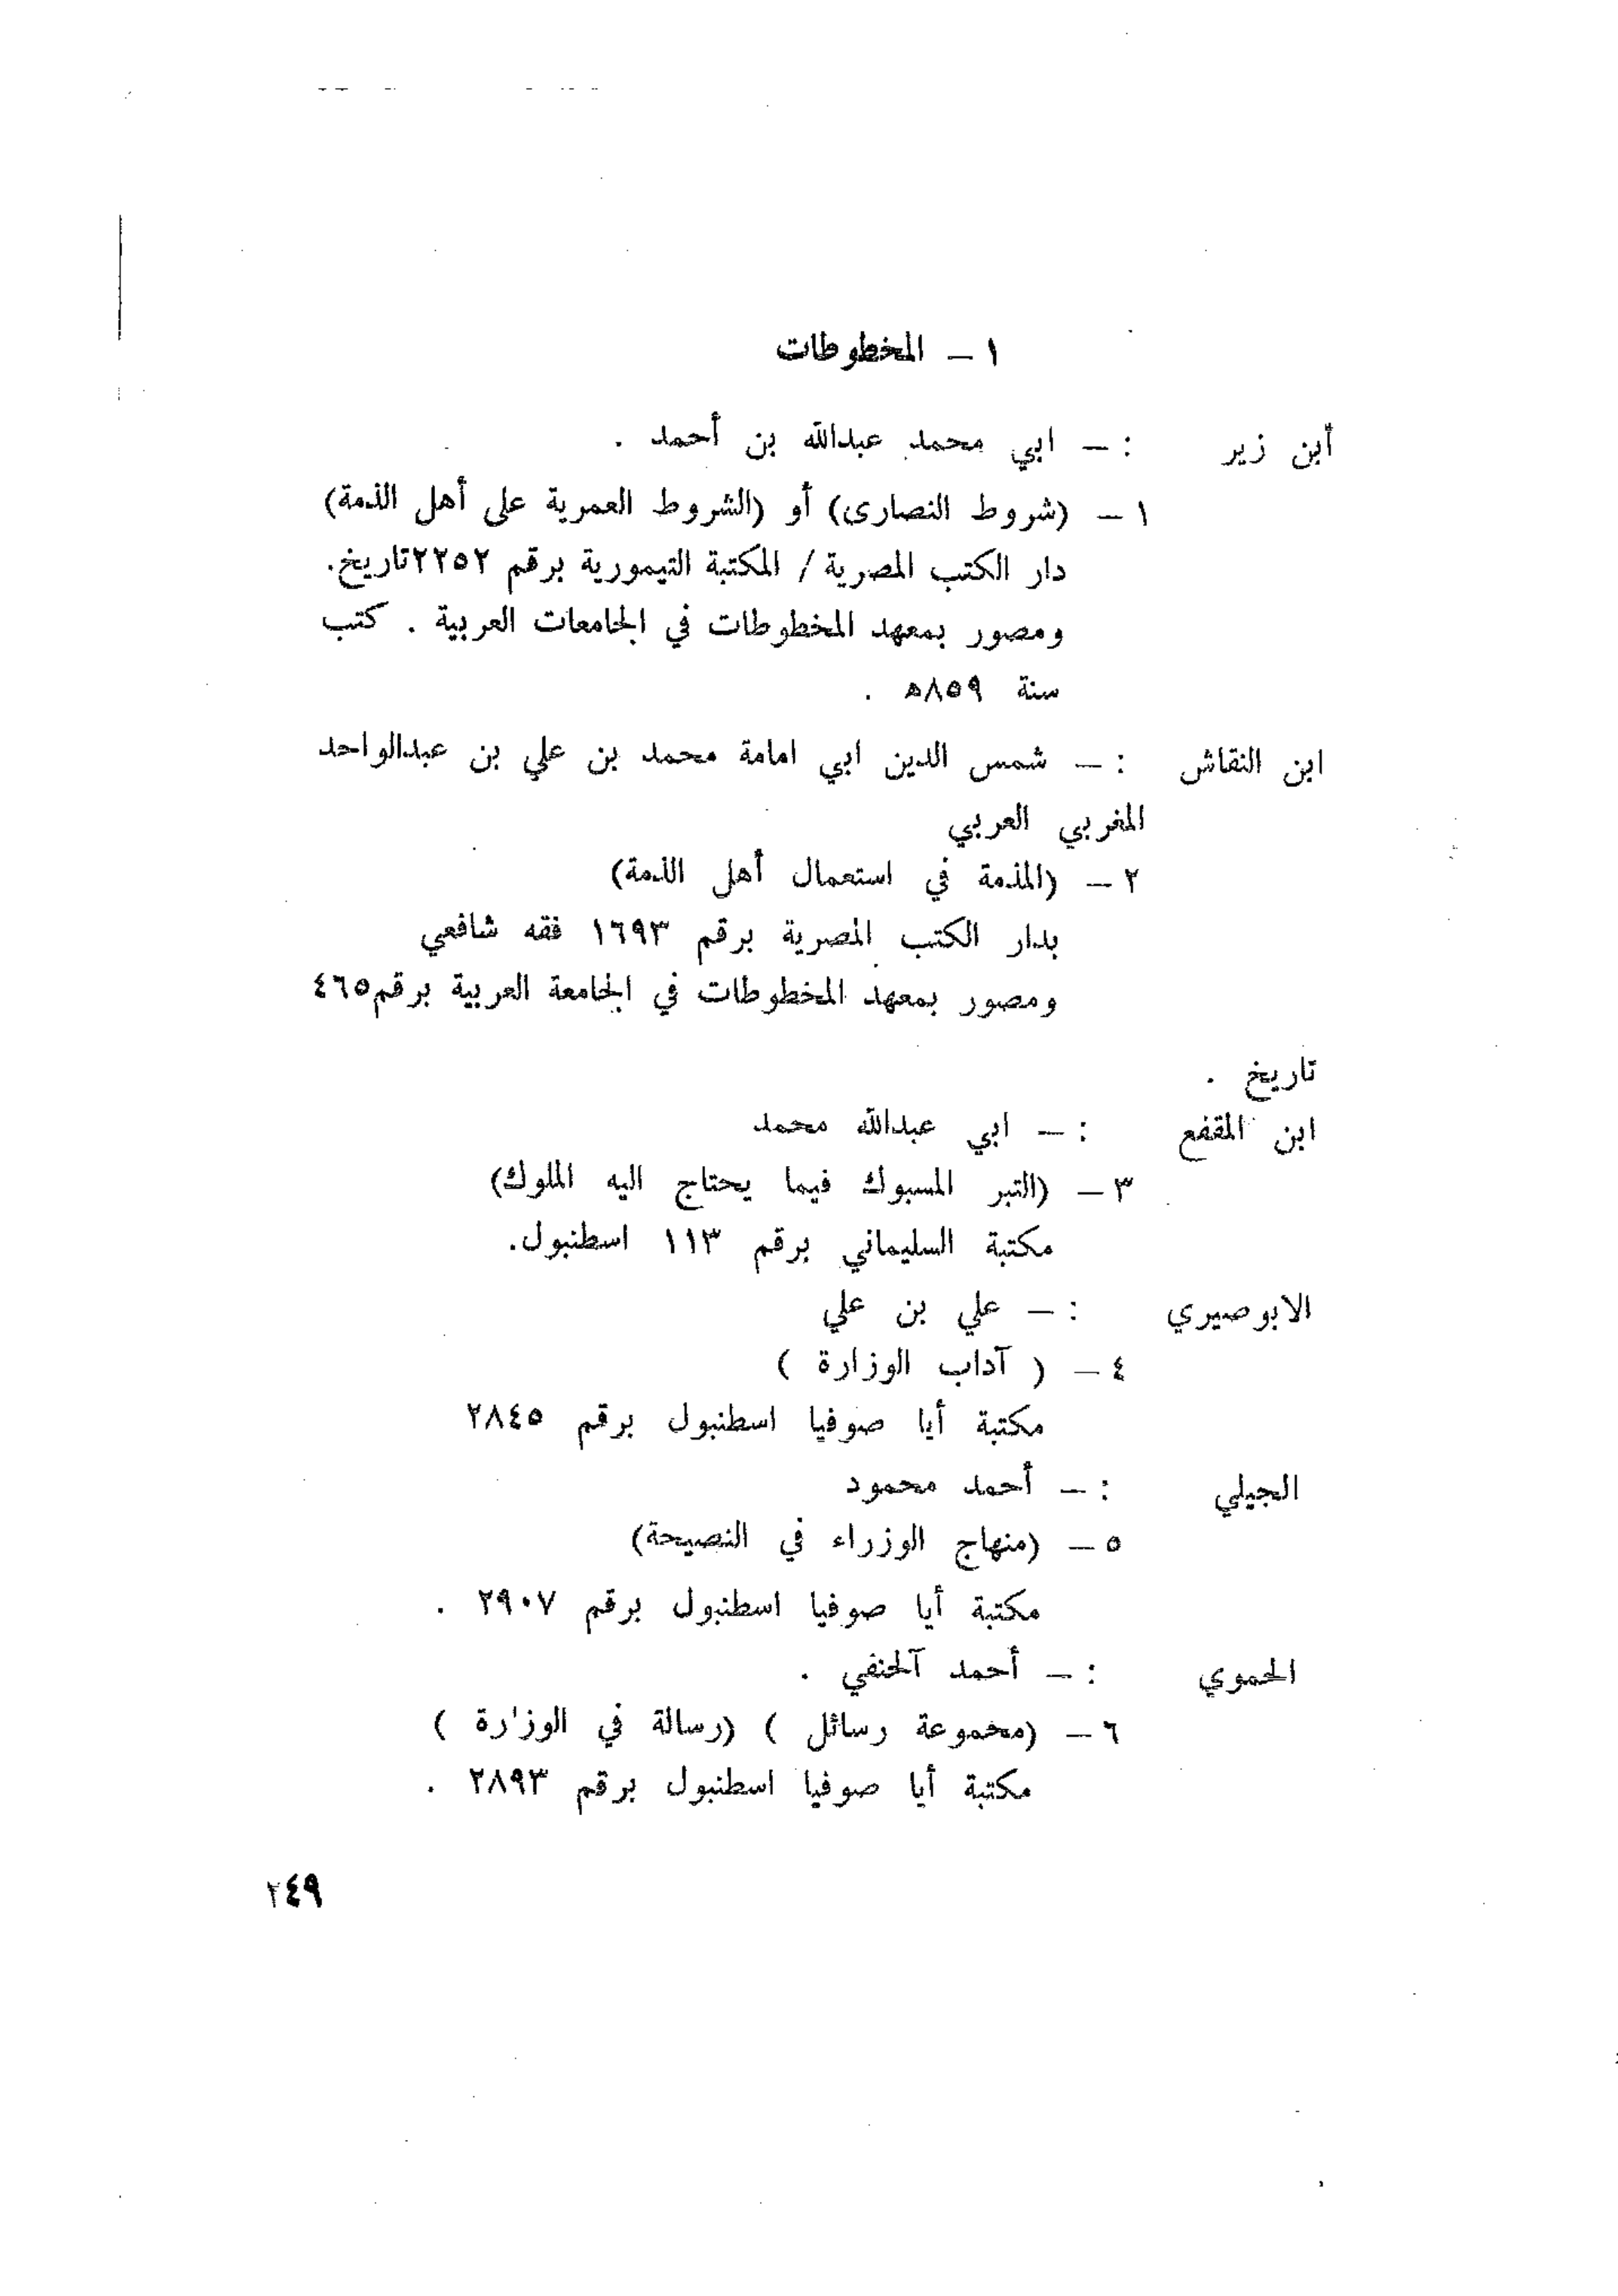 ١ – المخطوطات
أبن زير : – ابي محمد عبدالله بن أحمد .
١ – (شروط النصارى) أو (الشروط العمرية على أهل الذمة)
دار الكتب المصرية / المكتبة التيمورية برقم ٢٢٥٢ تاريخ.
ومصور بمعهد المخطوطات في الجامعات العربية . كتب
سنة ٨٥٩ه .
ابن النقاش : – شمس الدين ابي امامة محمد بن علي بن عبدالواحد
المغربي العربي
٢ – (المذمة في استعمال أهل الذمة)
بدار الكتب المصرية برقم ١٦٩٣ فقه شافعي
ومصور بمعهد المخطوطات في الجامعة العربية برقم ٤٦٥
تاريخ .
ابن المقفع : – ابي عبدالله محمد
٣ – (التبر المسبوك فيما يحتاج اليه الملوك)
مكتبة السليماني برقم ١١٣ اسطنبول.
الابوصيري : – علي بن علي
٤ – ( آداب الوزارة )
مكتبة أيا صوفيا اسطنبول برقم ٢٨٤٥
الجيلي : – أحمد محمود
٥ – (منهاج الوزراء في النصيحة)
مكتبة أيا صوفيا اسطنبول برقم ٢٩٠٧ .
الحموي : – أحمد آلحنفي .
٦ – (مخموعة رسائل ) (رسالة في الوزارة )
مكتبة أيا صوفيا اسطنبول برقم ٢٨٩٣ .
٢٤٩